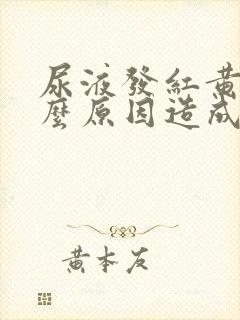 尿液發紅黃
麼原因造成
黃本友